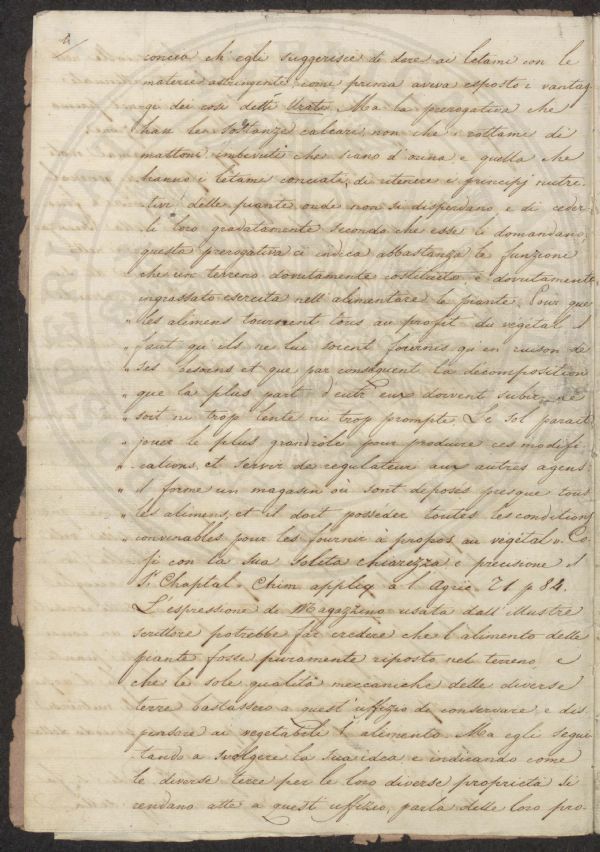 concia ch'egli suggerisce di dare ai letami con le
materie astringenti, come prima aveva esposto i vantag
gi dei così detti Urati. Ma la prerogativa che
han le sostanze calcari, non che i rottami di
mattoni imbiviti che siano d'orina e quella che
hanno i letami conciati, di ritenere i principj nutri
tivi delle piante onde non si disperdano e di ceder
li loro gradatamente secondo che esse li domandano,
questa prerogativa ci indica abbastanza la funzione
che un terreno dovutamente costituito e dovutamente
ingrassato esercita nell'alimentare le piante. Pour que
" les alimens tournent tous au profit du végétal il
" faut qu'ils ne lui soient fournis qu'en raison de
" ses besoins et que par conséquent la décomposition
" que la plus part d'entr'eux doivent subir, ne
" soit ni trop lente ni trop prompte. Le sol parait
" jouer le plus grand rôle pour produire ces modifi-
" cations, et servir de regulateur aux autres agens:
" il forme un magasin où sont déposés presque tous
" les alimens, et il doit posseder toutes les conditions
" convenables pour les fournir à propos au végétal ". Co-
sì con la sua solita chiarezza e precisione il
Sr Chaptal. Chim. appliq. à l'Agric. T.1 p. 84.
L'espressione di Magazzino usata dall'Illustre
scrittore potrebbe far credere che l'alimento delle
piante fosse puramente riposto nel terreno, e
che le sole qualità meccaniche delle diverse
terre bastassero a quest'uffizio di conservare e dis
pensare ai vegetabili l'alimento. Ma egli segui
tando a svolgere la sua idea e indicando come
le diverse terre per le loro diverse proprietà si
rendano atte a quest'uffizio, parla delle loro pro-